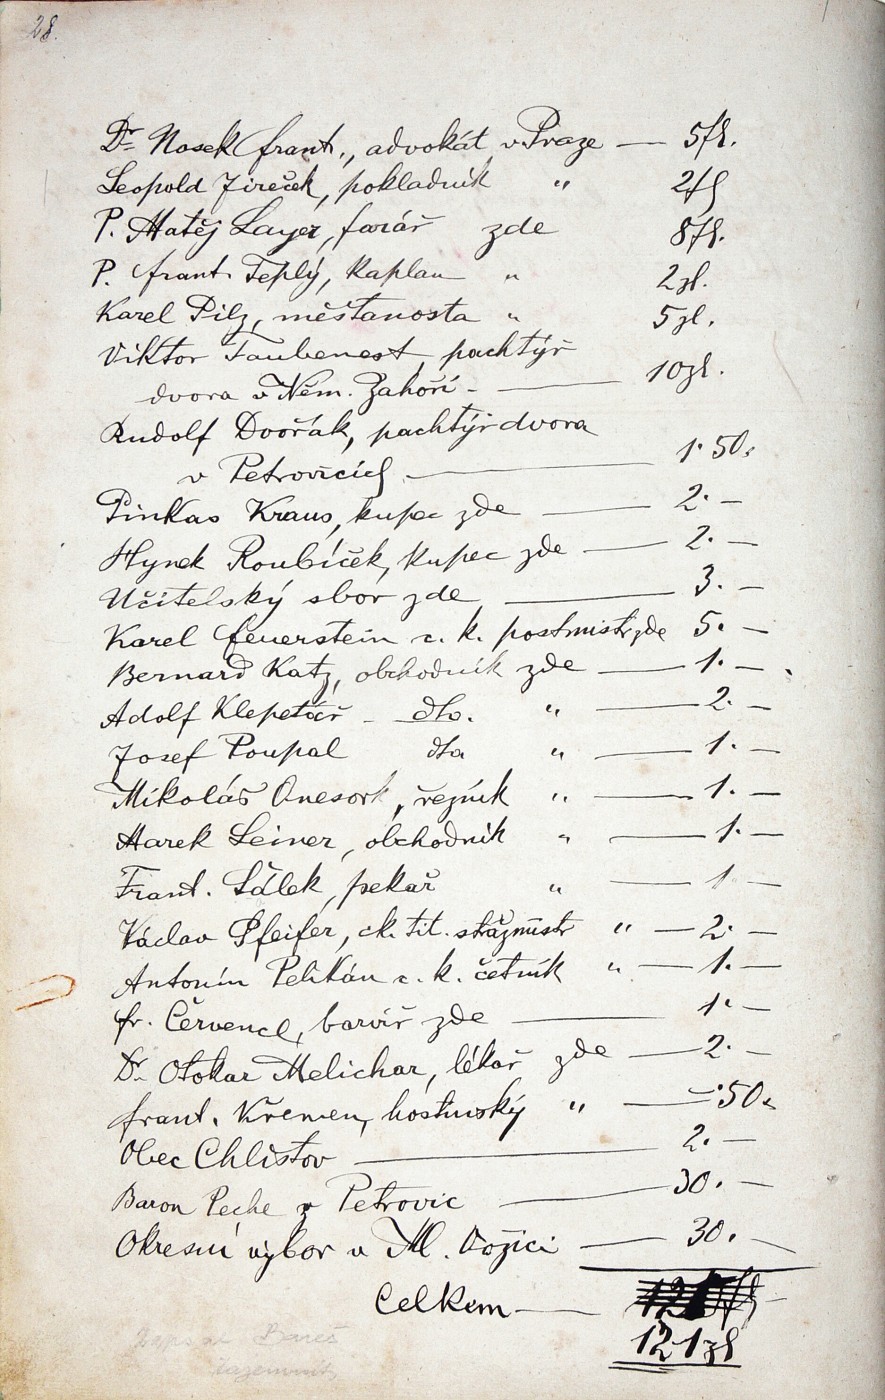 28.
Dr. Nosek Frant., advokát v Praze — 5 zl.
Leopold Jireček, pokladník " 2 zl
P. Matěj Layer, farář zde 8 zl.
P. Frant. Teplý, kaplan " 2 zl.
Karel Pilz, měšťanosta " 5 zl.
Viktor Taubenest, pachtýř
dvora v Něm. Zahoří - — 10 zl.
Rudolf Dvořák, pachtýř dvora
v Petrovicích — 1· 50.
Pinkas Kraus, kupec zde — 2· —
Hynek Roubíček, kupec zde — 2· —
Učitelský sbor zde — 3. —
Karel Feuerstein c. k. postmistr zde 5. —
Bernard Katz, obchodník zde — 1. —
Adolf Klepetář - dto. " — 2. —
Josef Poupal dto " — 1. —
Mikoláš Onesork, řezník " — 1. —
Marek Leiner, obchodník " — 1. —
Frant. Sálek, pekař " — 1 —
Václav Pfeifer, ck. tit. strážmistr " — 2. —
Antonín Pelikán c. k. četník " — 1. —
Fr. Červencl, barvíř zde — 1· —
Dr. Otokar Melichar, lékař zde — 2. —
Frant. Křemen, hostinský " — ·50
Obec Chlístov — 2. —
Baron Peche z Petrovic — 30. —
Okresní výbor v Ml. Vožici — 30. —
Celkem —
121 zl
Bareš